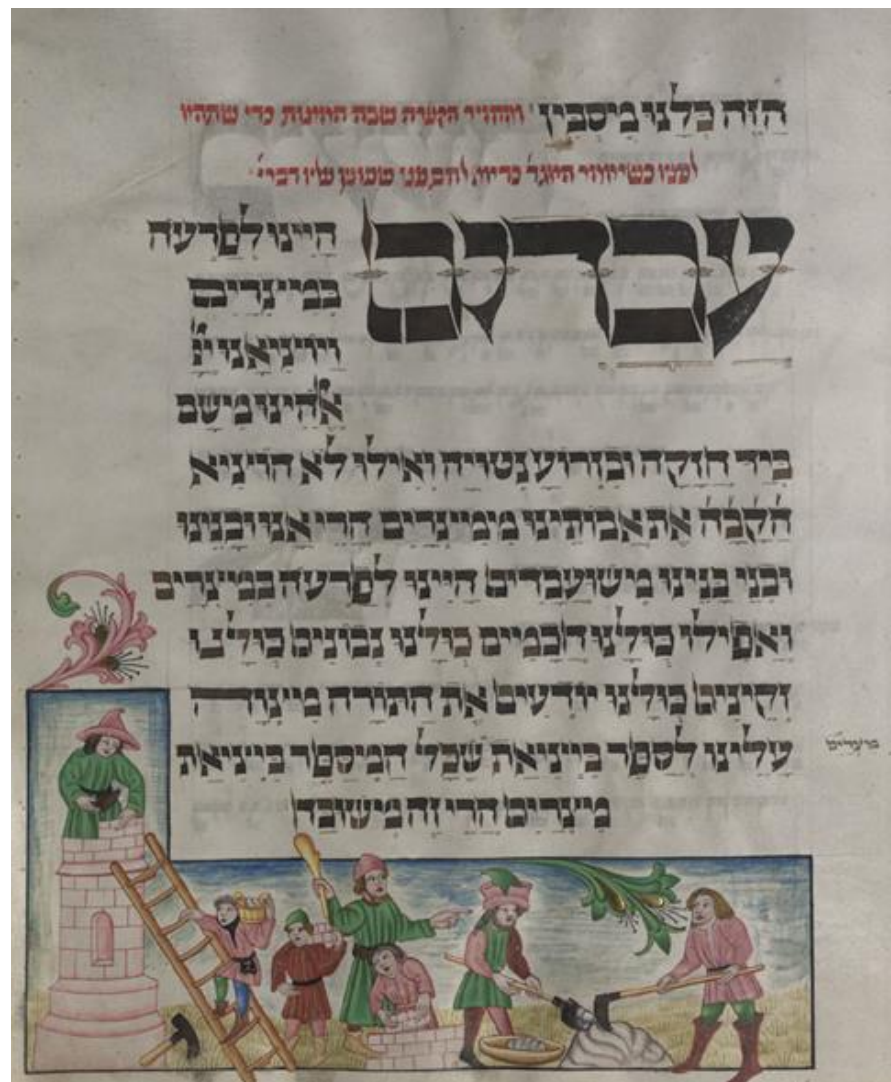 הַזֶּה כֻּלָּנוּ מְסֻבִּין׃ ותחזיר הקערה שבה המצות כדי שתהיו
לפניו כשיחזור היוגד כדיות
עֲבָדִים
הָיִינוּ לְפַרְעֹה
בְּמִיצְרַיִם
וַיוֹצִיאֵנוּ יְיָ
אֱלֹהֵינוּ מִשָּׁם
בְּיָד חֲזָקָה וּבִזְרוֹעַ נְטוּיָה וְאִילּוּ לֹא הוֹצִיא
הַקָּבָּ״ה אֶת אֲבוֹתֵינוּ מִמִּיצְרַיִם הֲרֵי אָנוּ וּבָנֵינוּ
וּבְנֵי בָנֵינוּ מְשׁוּעְבָּדִים הָיִינוּ לְפַרְעֹה בְּמִיצְרַיִם
וַאֲפִילוּ כּוּלָּנוּ חֲכָמִים כּוּלָּנוּ נְבוֹנִים כּוּלָּנוּ
זְקֵינִים כּוּלָּנוּ יוֹדְעִים אֶת הַתּוֹרָה מִיצְוָה
עָלֵינוּ לְסַפֵּר בִּיצִיאַת שֶׁכָּל הַמְסַפֵּר בִּיצִיאַת
מִיצְרַיִם הֲרֵי זֶה מְשׁוּבָּח
מצרים